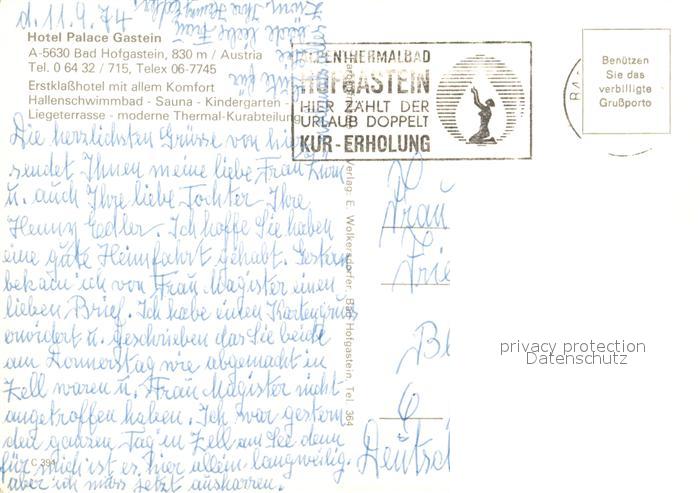 d. 11.9.74
Hotel Palace Gastein
A-5630 Bad Hofgastein, 830 m / Austria
Tel. 0 64 32 / 715, Telex 06-7745
Erstklaßhotel mit allem Komfort
Hallenschwimmbad - Sauna - Kindergarten -
Liegeterrasse - moderne Thermal-Kurabteilung
Die herzlichsten Grüsse von hier
sendet Ihnen meine liebe Frau
u. auch Ihre liebe Tochter Ihre
Henny Edler. Ich hoffe Sie haben
eine gute Heimfahrt gehabt. Gestern
bekam ich von Frau Magister einen
lieben Brief. Ich habe einen Kartengruss
erwidert u. geschrieben das Sie beide
am Donnerstag wie abgemacht in
Zell waren u. Frau Magister nicht
angetroffen haben. Ich war gestern
den ganzen Tag in Zell am See denn
für mich ist es hier allein langweilig.
aber ich muss jetzt ausharren.
C 394
Verlag: E. Wolkersdorfer, Bad Hofgastein, Tel. 364
THERMALBAD
HOFGASTEIN
HIER ZÄHLT DER
URLAUB DOPPELT
KUR-ERHOLUNG
Benützen
Sie das
verbilligte
Grußporto
Frau
privacy protection
Datenschutz